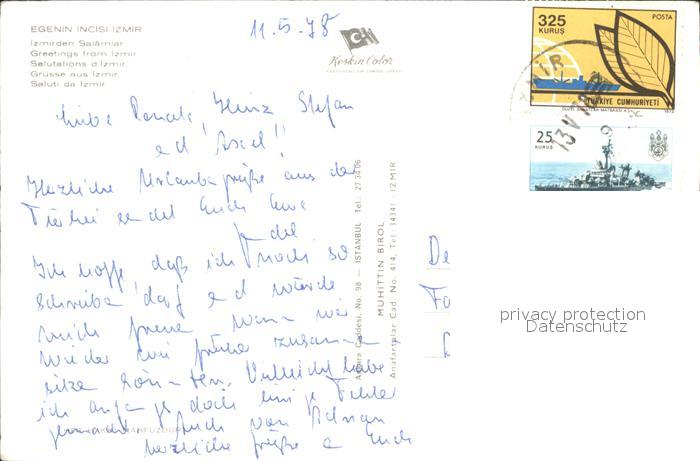 EGENİN İNCİSİ İZMİR
İzmirden Salâmlar
Greetings from İzmir
Salutations d'İzmir
Grüsse aus İzmir
Saluti da İzmir
11.5.78
Keskin Color
325
KURUŞ
POSTA
TÜRKİYE CUMHURİYETİ
13 V 19
25
KURUŞ
Liebe Renate, Heinz, Stefan
und Axel!!
Herzliche Urlaubsgrüße aus der
Türkei sendet Euch Eure
Ich hoffe, daß ich noch so
schreiben darf und würde
mich freuen wenn wir
wieder wie früher zusammen
sitzen könnten. Vielleicht habe
ich auch ja doch einige Fehler
gemacht. Auch von Adnan
herzliche Grüße an Euch
Ankara Caddesi. No. 98 — ISTANBUL Tel. 27 34 06
MUHİTTİN BİROL
Anafartalar Cad. No. 414, Tel: 34341 - İZMİR
MAHFUZDUR
De
Fa
privacy protection
Datenschutz